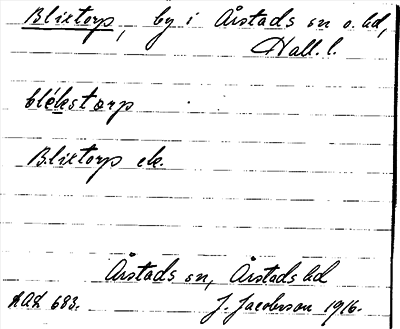 Blixtorp, by i Årstads sn o. hd,
Hall. l.
blékstorp
Blixtorp ek.
Årstads sn, Årstads hd
AAS 683. J. Jacobsson 1916.